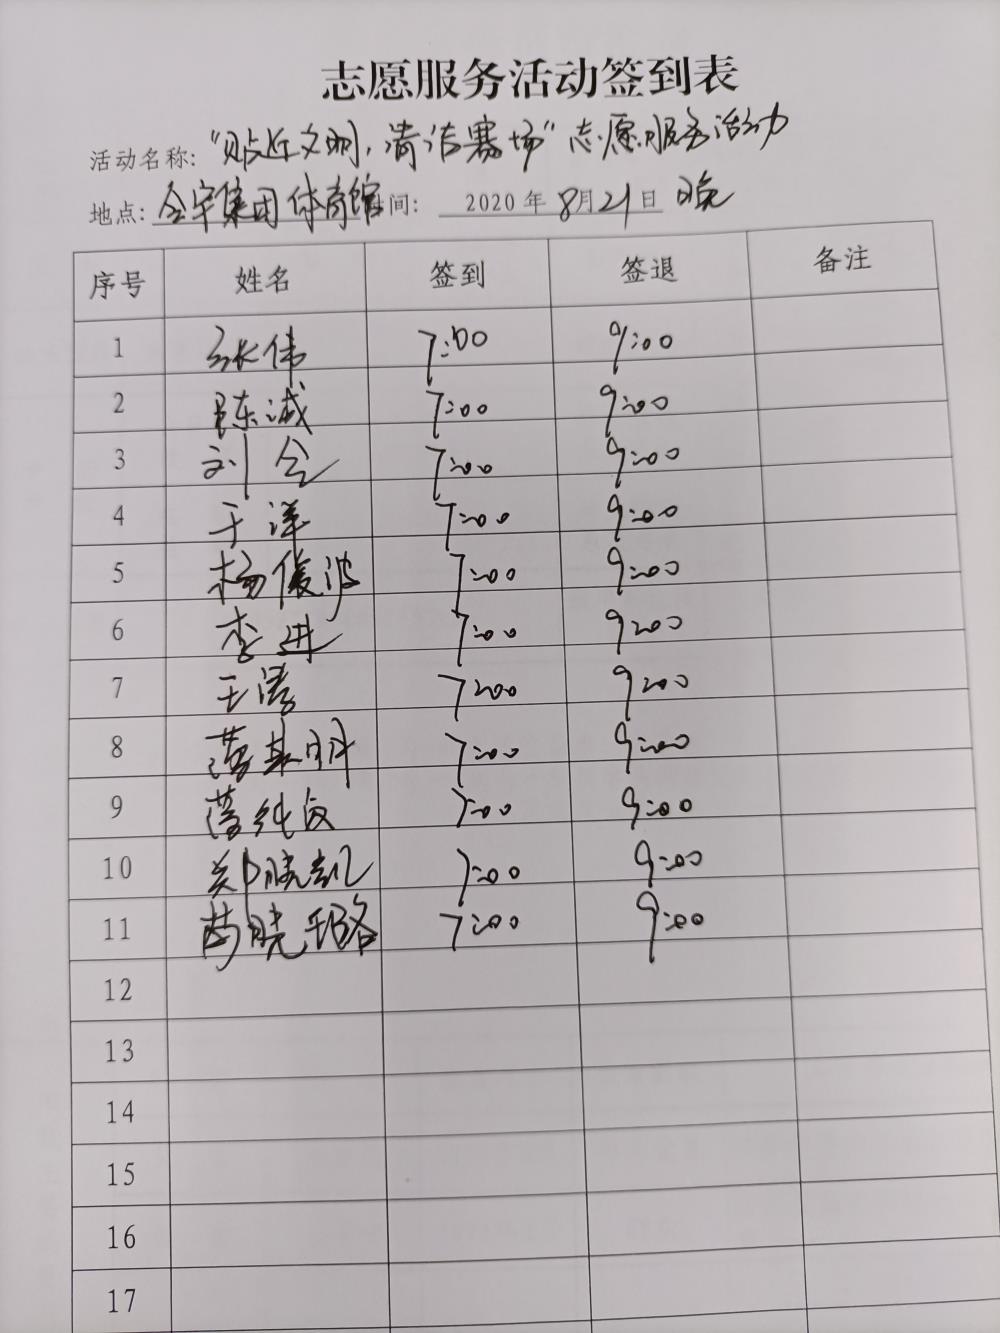 志愿服务活动签到表
活动名称: "贴近文明,清洁赛场"志愿服务活动
地点: 金宇集团体育馆 时间: 2020年8月21日 晚
序号 姓名 签到 签退 备注
1 张伟 7:00 9:00
2 陈诚 7:00 9:00
3 刘会 7:00 9:00
4 于洋 7:00 9:00
5 杨俊波 7:00 9:00
6 李进 7:00 9:00
7 王涛 7:00 9:00
8 7:00 9:00
9 7:00 9:00
10 7:00 9:00
11 7:00 9:00
12
13
14
15
16
17